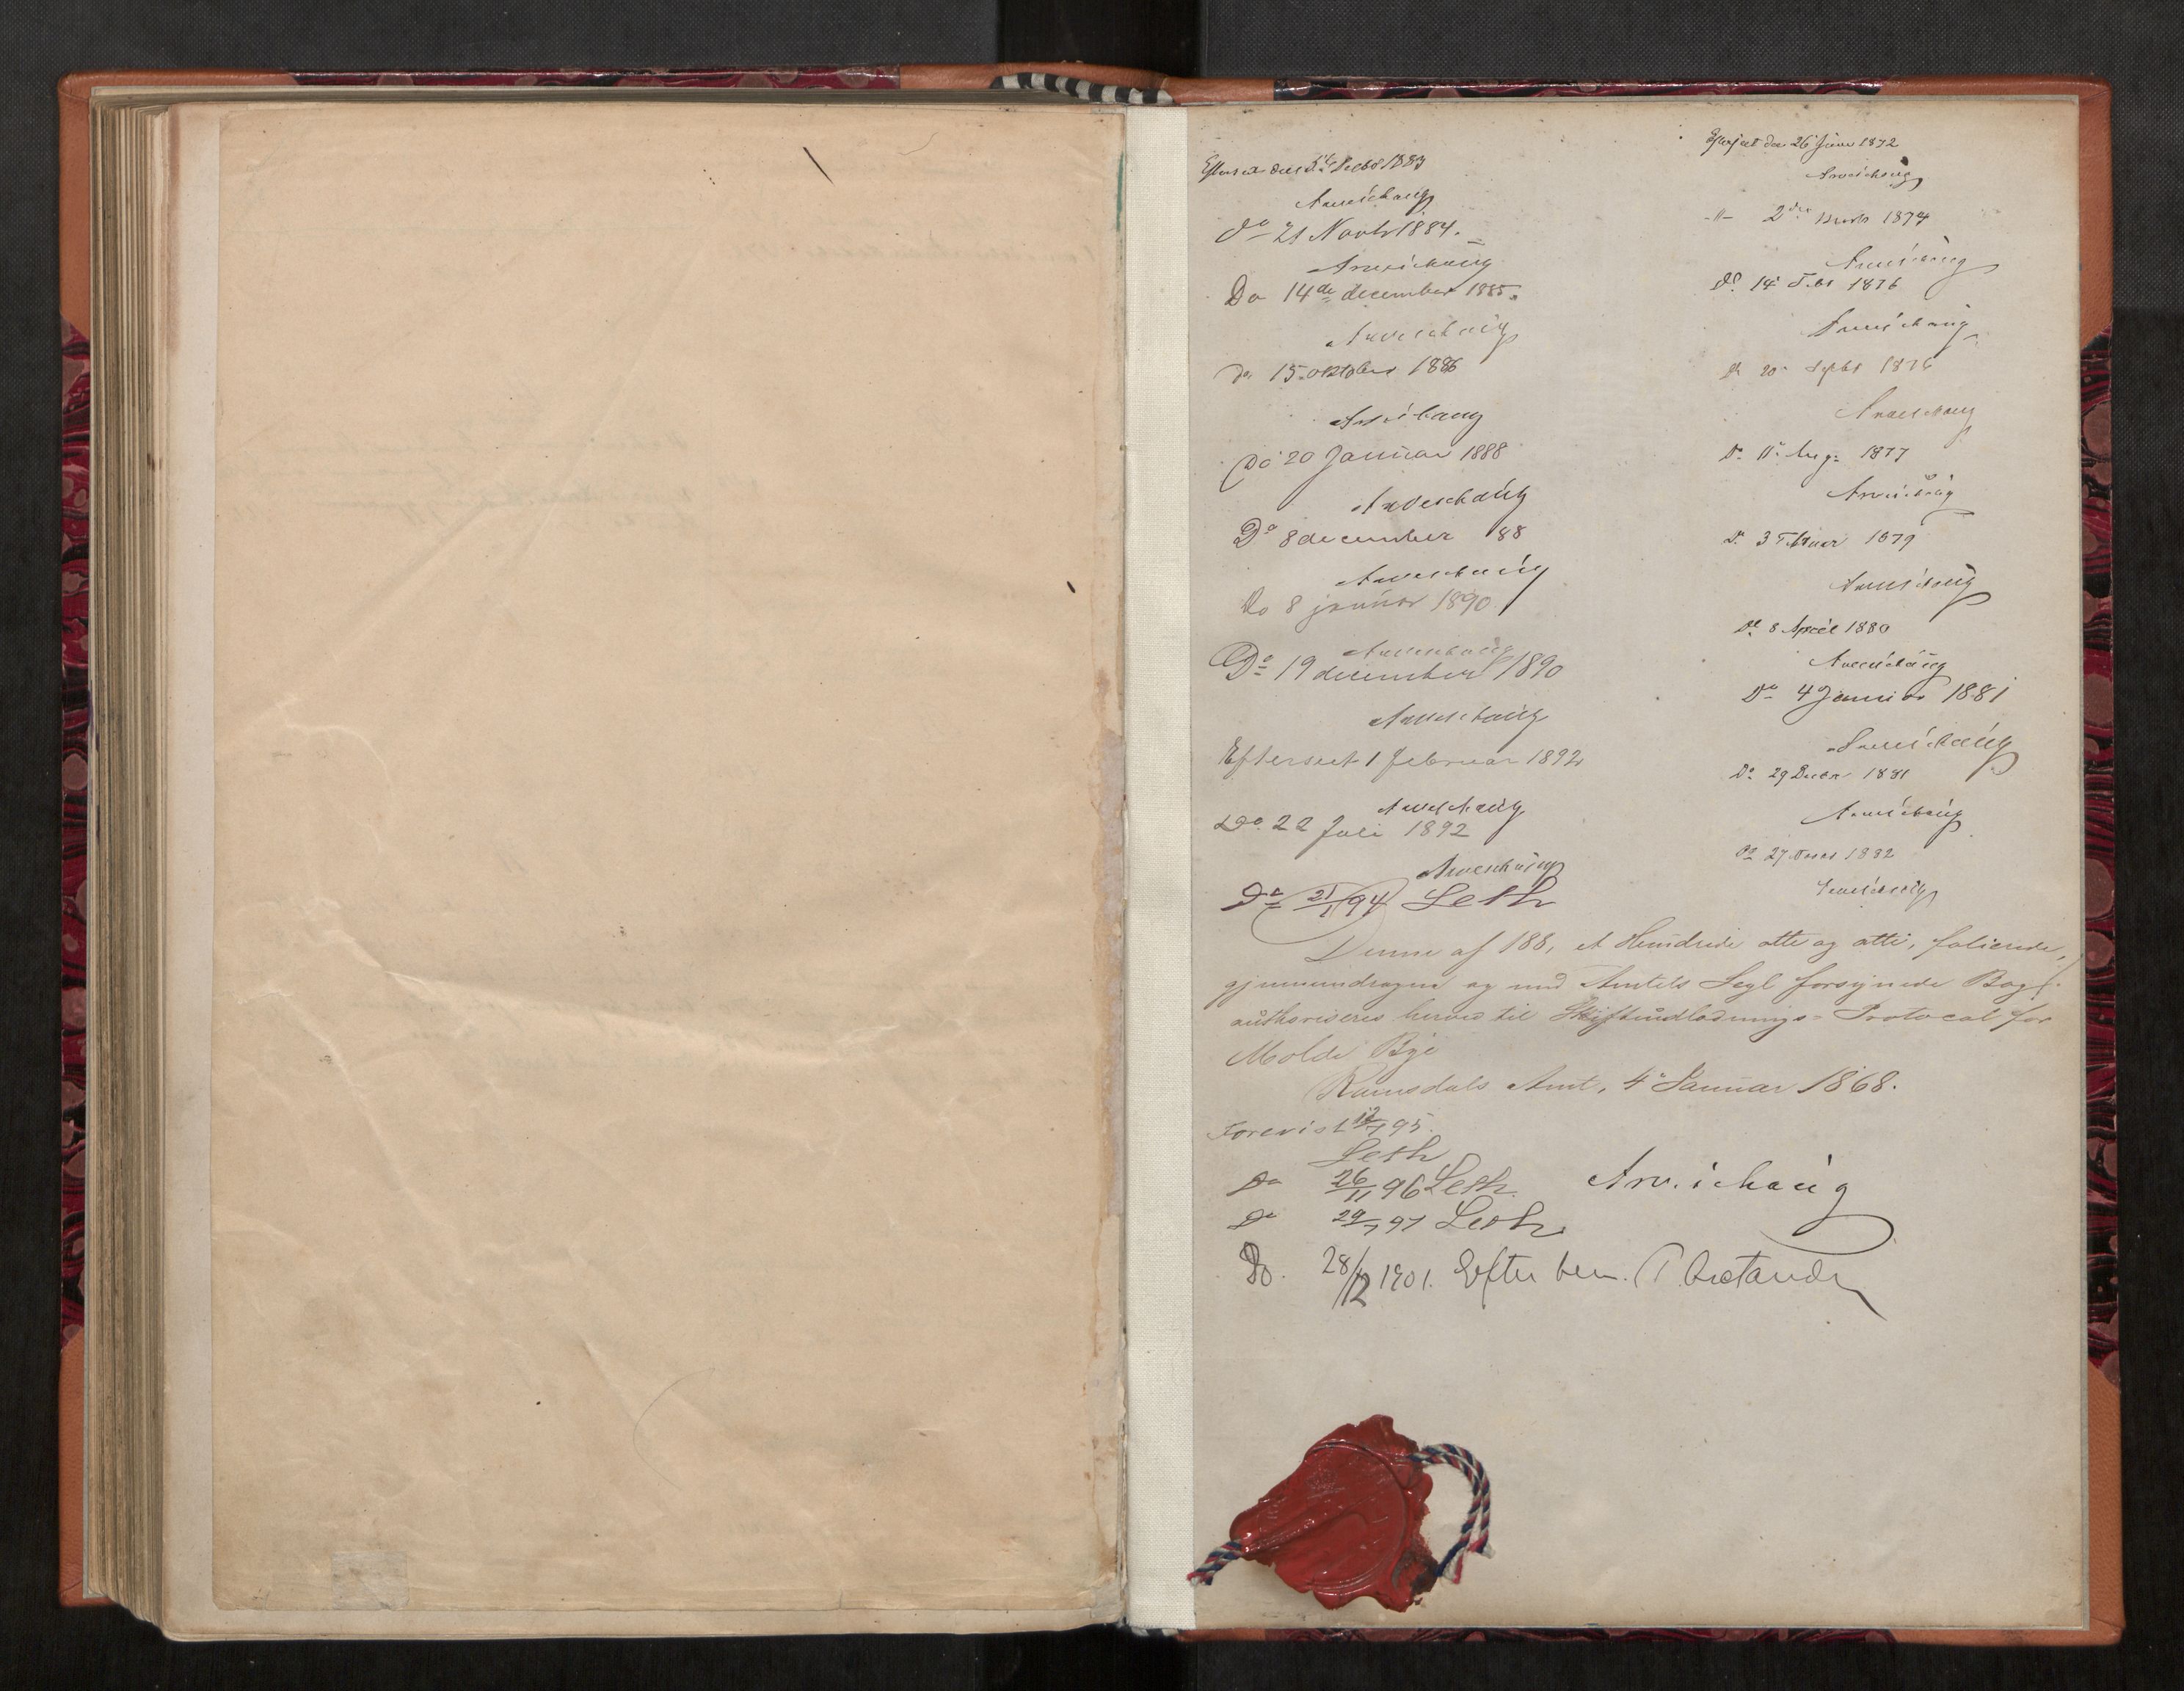 Efterseet den 5 Decbr 1883
Arveschoug
Do 21 Novbr 1884.
Arveschoug
Do 14de december 1885.
Arveschoug
Do 15 oktober 1886
Arveschoug
Do 20 Januar 1888
Arveschoug
Do 8 december 88
Arveschoug
Do 8 januar 1890
Arveschoug
Do 19 december 1890
Arveschoug
Efterseet 1 februar 1892
Arveschoug
Do 22 Juli 1892
Arveschoug
Do 21/1 94 Leth
Efterseet den 26 Juni 1872
Arveschoug
-"- 2den 1874
Arveschoug
Do 14 Febr 1876
Arveschoug
Do 20 Septbr 1876
Arveschoug
Do 11 Aug. 1877
Arveschoug
Do 3 Februar 1879
Arveschoug
Do 8 April 1880
Arveschoug
Do 4 Januar 1881
Arveschoug
Do 29 Decbr 1881
Arveschoug
Do 27 1882
Arveschoug
Denne af 188, et Hundrede otte og otti, folierede,
gjennemdragne og med Amtets Segl forsynede Bog
authoriseres herved til Skifteudlodnings-Protocol for
Molde Bye
Romsdals Amt, 4 Januar 1868.
Arveschoug
Forevist 12/7 95.
Leth
Do 26/11 96 Leth
Do 29/7 97 Leth
Do. 28/12 1901. Efter bem.